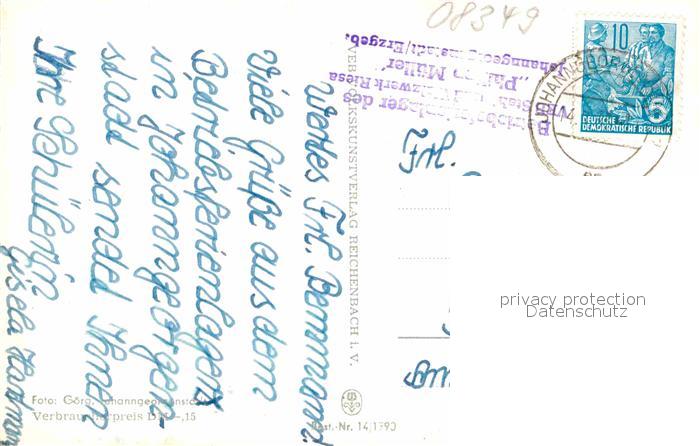 08349
Wertes Frl. Bemmann!
Viele Grüße aus dem
Betriebsferienlager
in Johanngeorgen-
stadt sendet Ihnen
Ihre Schülerin
Gisela
Betriebsferienlager des
VEB Stahl- und Walzwerk Riesa
"Philipp Müller"
Johanngeorgenstadt/Erzgeb.
VEB VOLKSKUNSTVERLAG REICHENBACH i. V.
10
DEUTSCHE
DEMOKRATISCHE REPUBLIK
Frl.
privacy protection
Datenschutz
Foto: Görg, Johanngeorgenstadt
Verbraucherpreis DM -,15
Best.-Nr. 14/1390